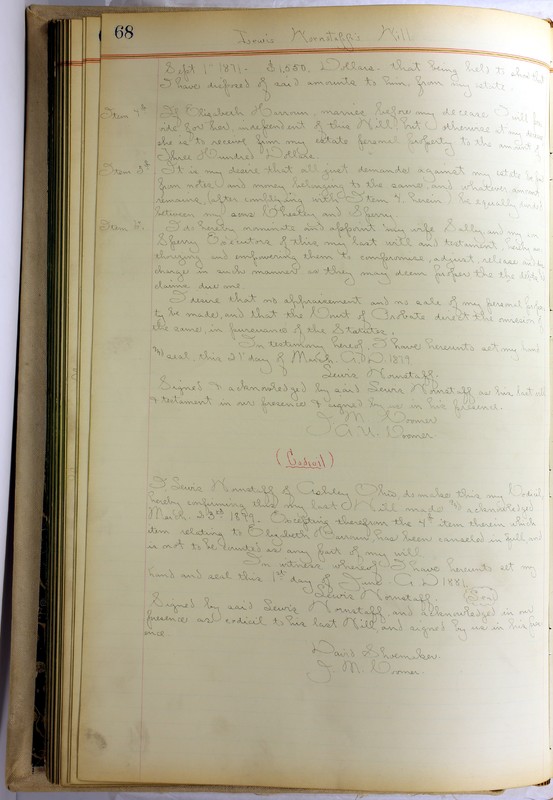 68
Lewis Wornstaff's Will
Sept 1st 1871. $1,550. Dollars. that being held to show that
I have disposed of said amounts to him, from my estate
Item 4th If Elizabeth Harroun, marries before my decease I will
vide for her, independent of this Will, but otherwise at my decease
she is to receive from my estate personal property to the amount of
Three Hundred Dollars.
Item 5th It is my desire that all just demands against my estate be paid
from notes and money belonging to the same, and whatever amount
remains, (after complying with Item 4 herein) be equally divided
between my sons and Sperry.
Item 6. I do hereby nominate and appoint my wife Sally and my son
Sperry Executors of this my last will and testament, hereby au-
thorizing and empowering them to compromise, adjust, release and dis-
charge in such manner as they may deem proper the the debts &
claims due me.
I desire that no appraisement and no sale of my personal proper-
ty be made, and that the Court of Probate direct the omission of
the same, in pursuance of the Statutes.
In testimony hereof, I have hereunto set my hand
and seal, this day of March. A.D. 1879
Lewis Wornstaff.
Signed & acknowledged by said Lewis Wornstaff as his last will
& testament in our presence & signed by us in his presence.
J. M. Coomer
Coomer
(Codicil)
I Lewis Wornstaff of Ashley Ohio, do make this my Codicil,
hereby confirming this my last Will made and acknowledged
March 1879. Excepting therefrom the 4th item therein which
item relating to Elizabeth Harroun has been canceled in full, and
is not to be counted as any part of my will.
In witness whereof I have hereunto set my
hand and seal this 1st day of June A.D. 1881.
Lewis Wornstaff. (Seal)
Signed by said Lewis Wornstaff and acknowledged in our
presence as codical to his last Will, and signed by us in his pres-
ence
David Shoemaker.
J. M. Coomer.